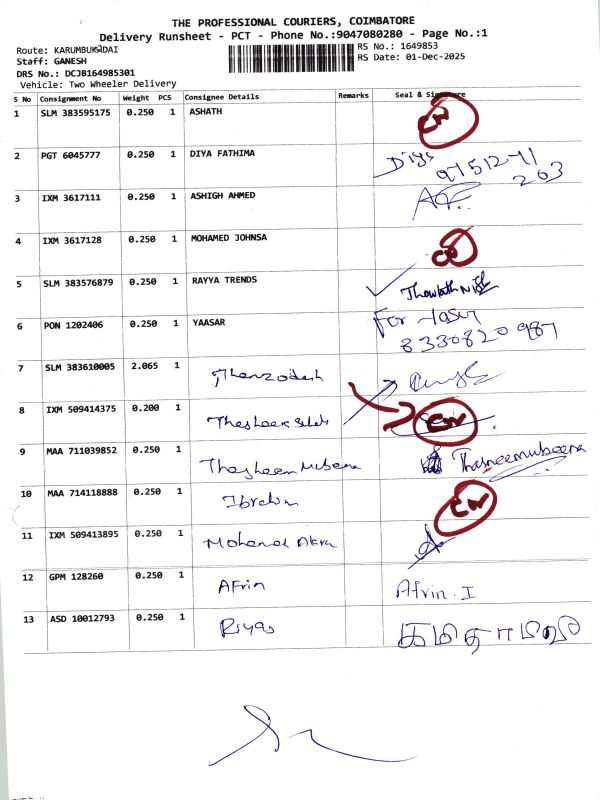 THE PROFESSIONAL COURIERS, COIMBATORE
Delivery Runsheet - PCT - Phone No.:9047080280 - Page No.:1
Route: KARUMBUKADAI
RS No.: 1649853
Staff: GANESH
RS Date: 01-Dec-2025
DRS No.: DCJB164985301
Vehicle: Two Wheeler Delivery
S No Consignment No Weight PCS Consignee Details Remarks Seal & Signature
1 SLM 383595175 0.250 1 ASHATH
2 PGT 6045777 0.250 1 DIYA FATHIMA Diya 97512-11
263
3 IXM 3617111 0.250 1 ASHIGH AHMED
4 IXM 3617128 0.250 1 MOHAMED JOHNSA
5 SLM 383576879 0.250 1 RAYYA TRENDS
6 PON 1202406 0.250 1 YAASAR For
8330820987
7 SLM 383610005 2.065 1
8 IXM 509414375 0.200 1
9 MAA 711039852 0.250 1 Thasneemubeena
10 MAA 714118888 0.250 1 Ibrahim
11 IXM 509413895 0.250 1 Mohamed
12 GPM 128260 0.250 1 Afrin Afrin. I
13 ASD 10012793 0.250 1 Riyas